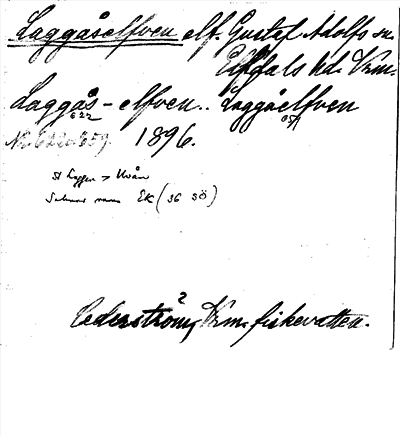 Laggåselfven elf. Gustaf Adolfs sn.
Elfdals hd. Vrm.
Laggås-elfven.. Laggåelfven
622 659
Nr. 622o.659. 1896.
St Laggen > Uvån
Saknar namn EK (36 SÖ)
2
Cederström, Vrm. fiskevatten.